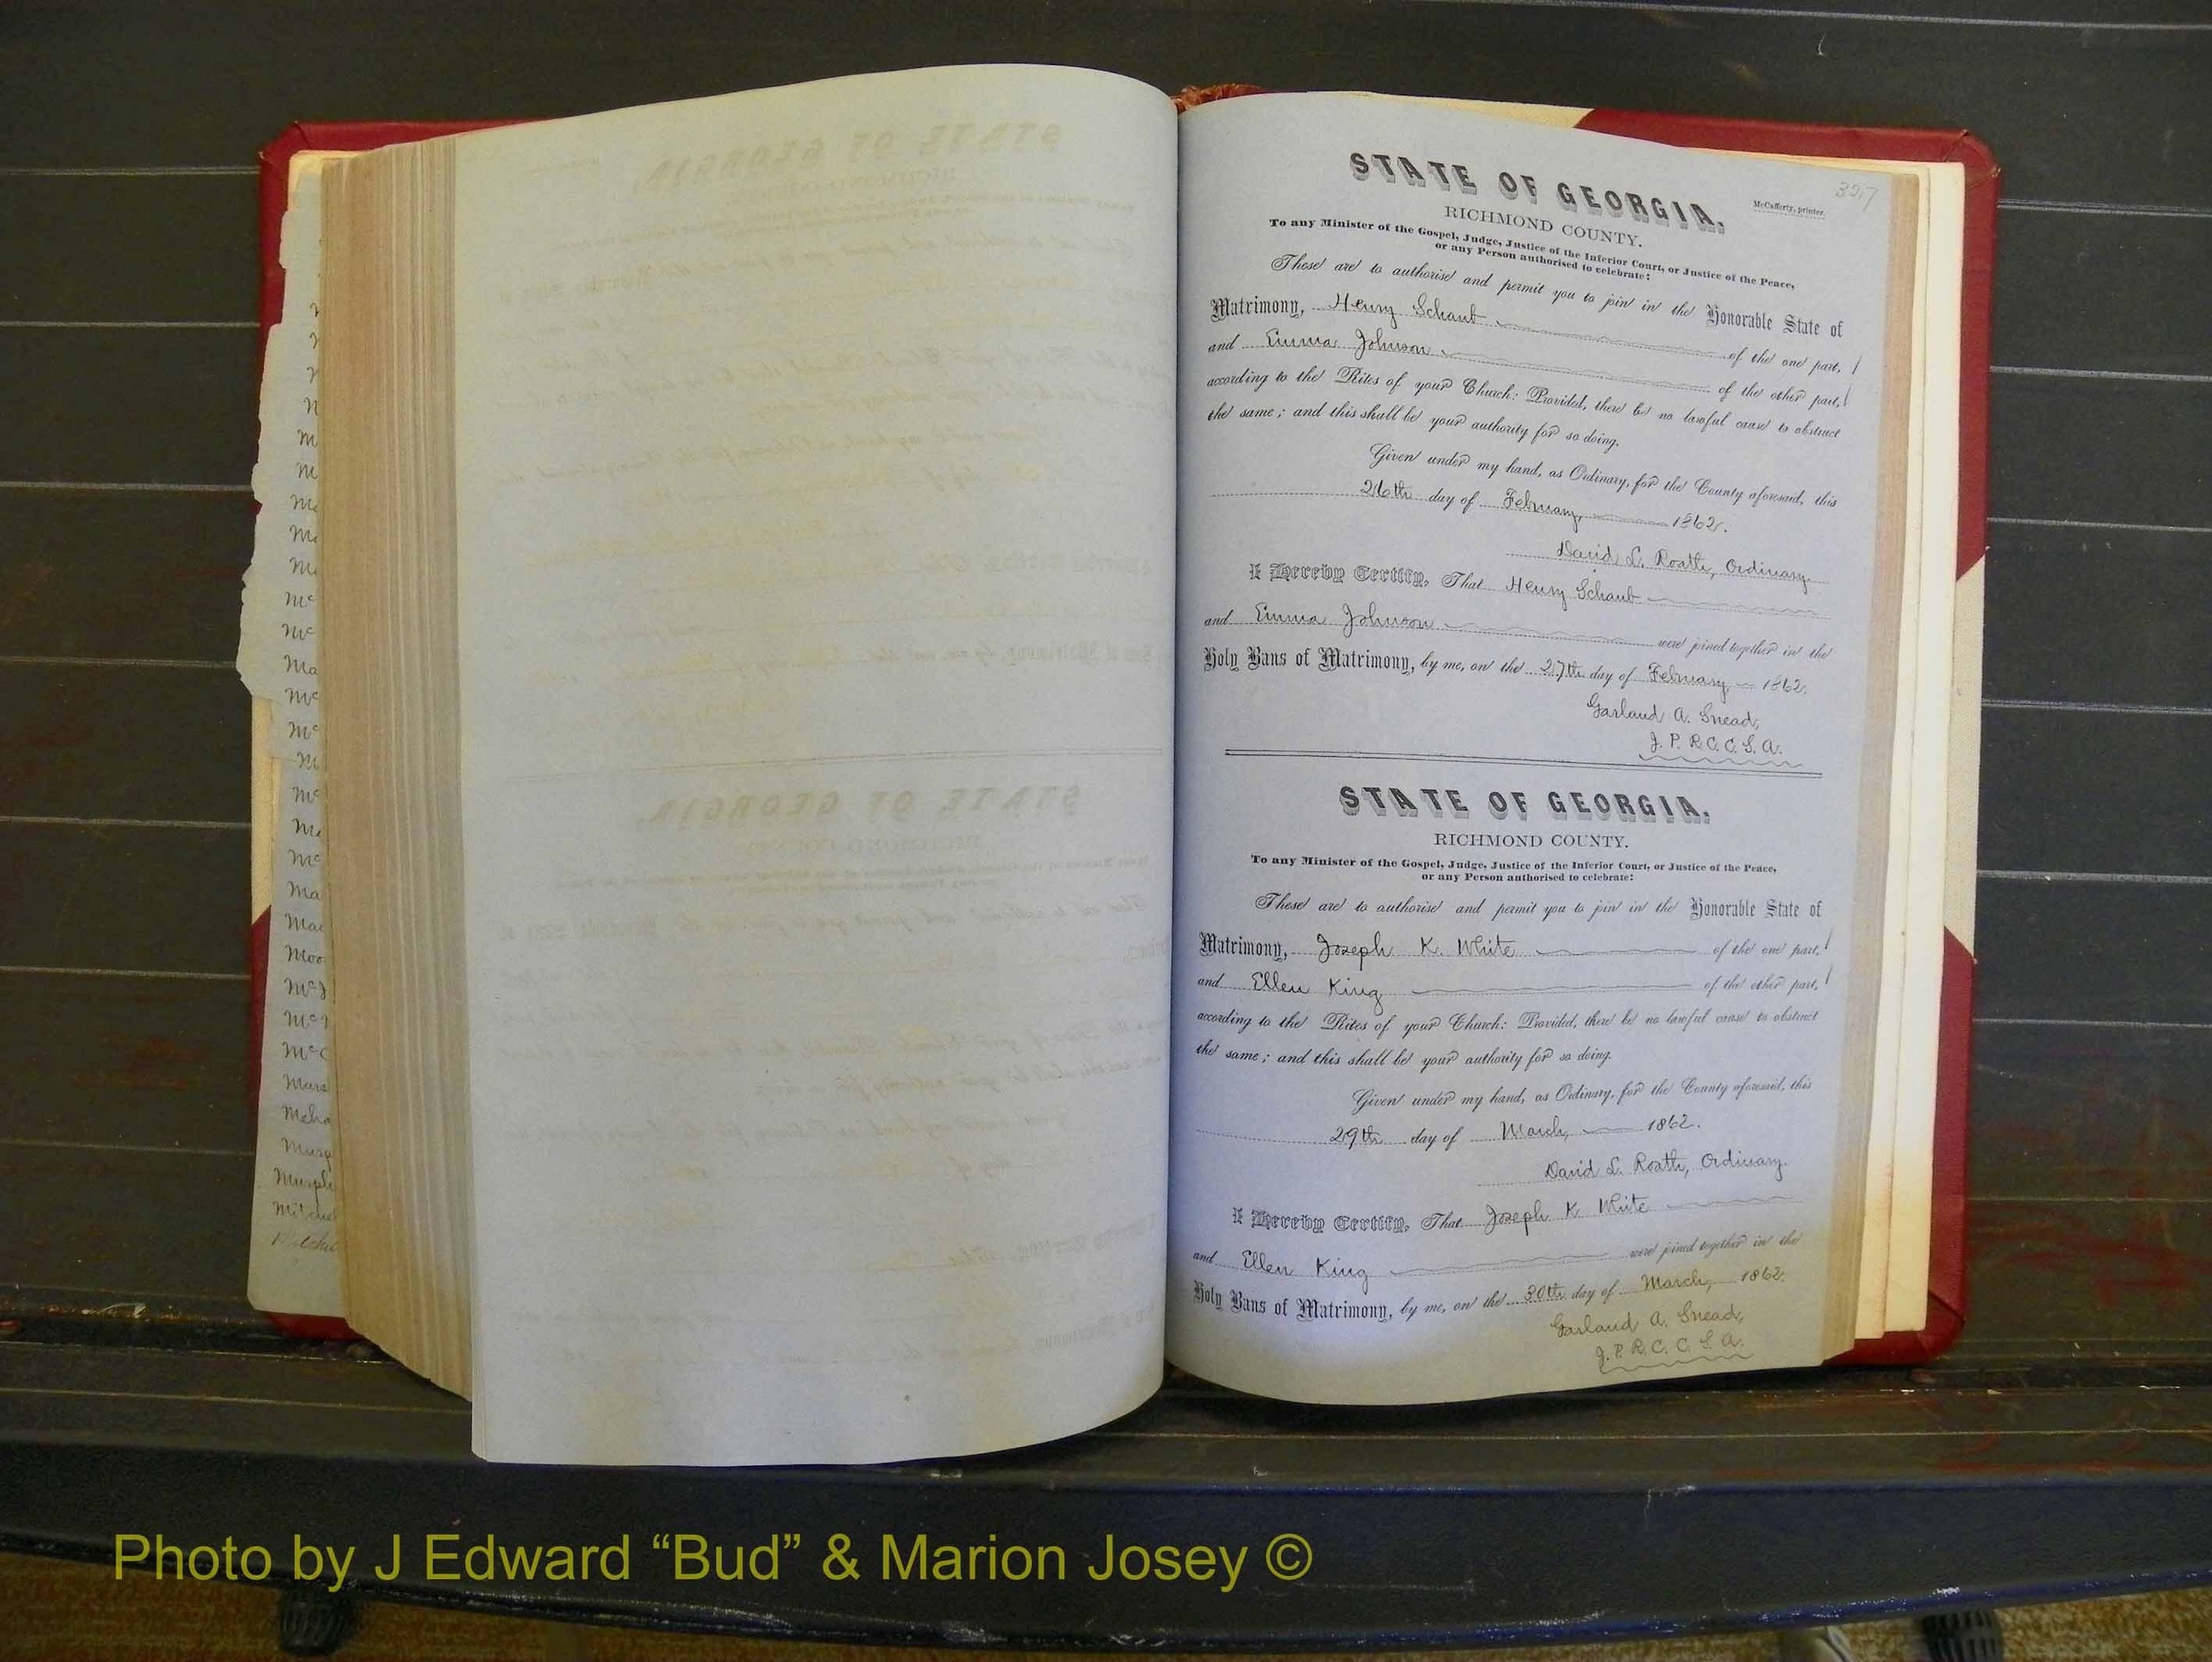 327
STATE OF GEORGIA.
McCafferty, printer.
RICHMOND COUNTY.
To any Minister of the Gospel, Judge, Justice of the Inferior Court, or Justice of the Peace,
or any Person authorised to celebrate:
These are to authorise and permit you to join in the Honorable State of
Matrimony, Henry Schaub of the one part,
and Emma Johnson of the other part,
according to the Rites of your Church: Provided, there be no lawful cause to obstruct
the same; and this shall be your authority for so doing.
Given under my hand, as Ordinary, for the County aforesaid, this
26th day of February, 1862.
David L. Roath, Ordinary.
I Hereby Certify, That Henry Schaub
and Emma Johnson were joined together in the
Holy Bans of Matrimony, by me, on the 27th day of February 1862.
Garland A. Snead,
J. P. R. C. C. S. A.
STATE OF GEORGIA.
RICHMOND COUNTY.
To any Minister of the Gospel, Judge, Justice of the Inferior Court, or Justice of the Peace,
or any Person authorised to celebrate:
These are to authorise and permit you to join in the Honorable State of
Matrimony, Joseph K. White of the one part,
and Ellen King of the other part,
according to the Rites of your Church: Provided, there be no lawful cause to obstruct
the same; and this shall be your authority for so doing.
Given under my hand, as Ordinary, for the County aforesaid, this
29th day of March, 1862.
David L. Roath, Ordinary.
I Hereby Certify, That Joseph K White
and Ellen King were joined together in the
Holy Bans of Matrimony, by me, on the 30th day of March, 1862.
Garland A. Snead,
J. P. R. C. C. S. A.
Photo by J Edward “Bud” & Marion Josey ©